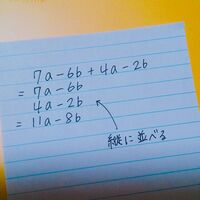 7a-6b+4a-2b
= 7a-6b
4a-2b
= 11a-8b
縦に並べる